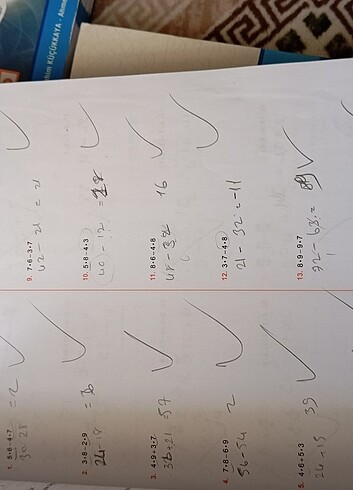 him KÜÇÜKKAYA - Ahme
1. 5·6-4·7
30 28 = 2
2. 3·8-2·9
24-18 =
3. 4·9+3·7
36+21 57
4. 7·8-6·9
56-54 2
5. 4·6+5·3
24-15 39
9. 7·6-3·7
42 21 = 21
10. 5·8-4·3
40-12 =
11. 8·6-4·8
48-32 16
12. 3·7-4·8
21-32 = -11
13. 8·9-9·7
72-63 =